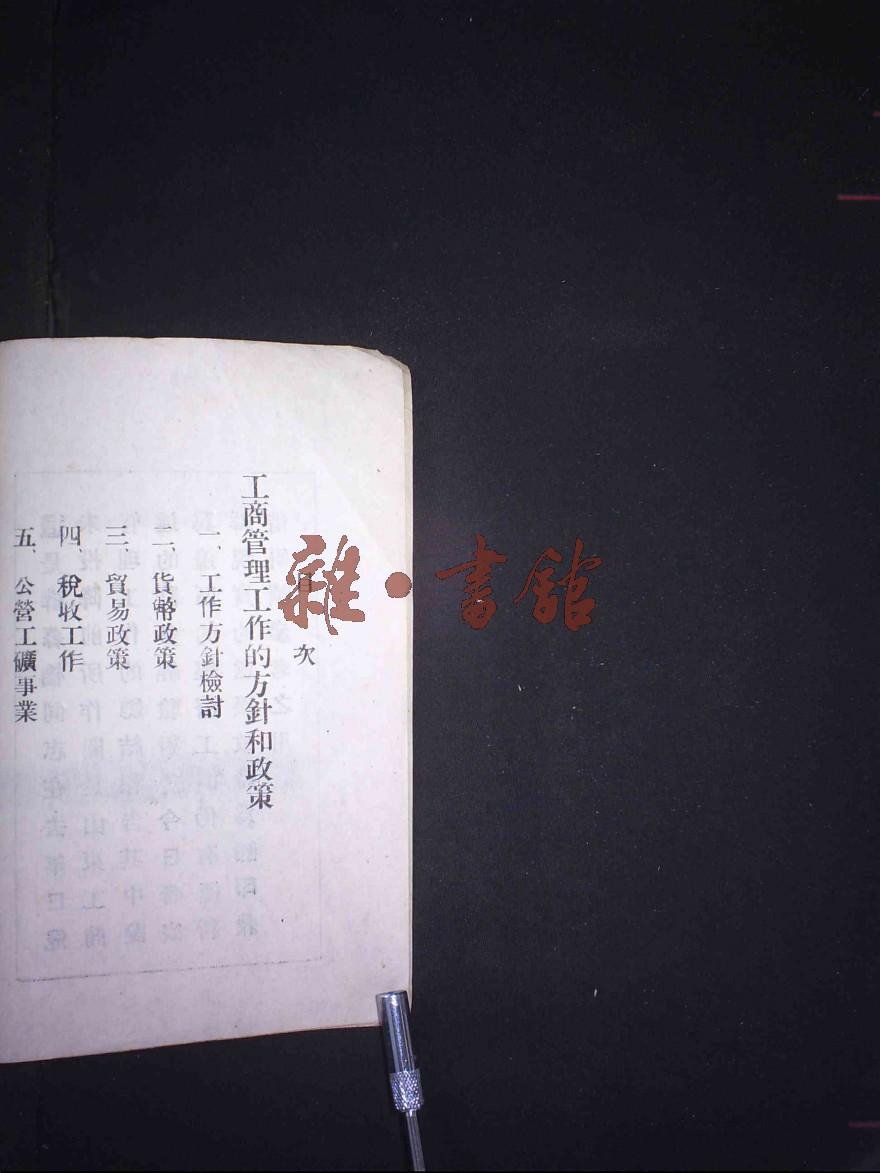 目次
工商管理工作的方針和政策
一、工作方針檢討
二、貨幣政策
三、貿易政策
四 稅收工作
五、公營工礦事業
雜·書館